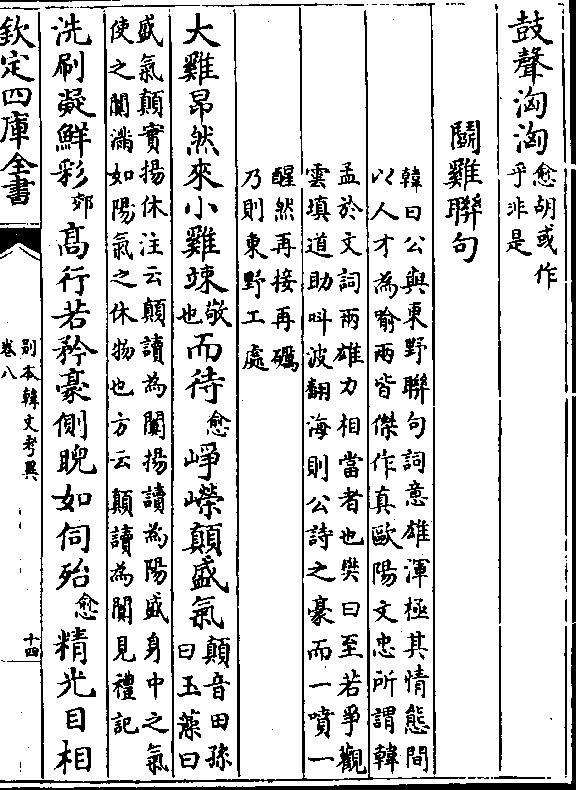 鼓聲洶洶愈胡或作
乎非是
鬭雞聯句
韓曰公與東野聯句詞意雄渾極其情態間
以人才為喻兩皆傑作真歐陽文忠所謂韓
孟於文詞兩雄力相當者也樊曰至若爭觀
雲填道助叫波翻海則公詩之豪而一噴一
醒然再接再礪
乃則東野工處
大雞昂然來小雞竦敬也而待愈崢嶸顛盛氣顛音田孫
曰玉藻曰
盛氣顛實揚休注云顛讀為闐揚讀為陽盛身中之氣
使之闐滿如陽氣之休物也方云顛讀為闐見禮記
洗刷凝鮮彩郊高行若矜豪側睨如伺殆愈精光目相
欽定四庫全書
別本韓文考異
卷八
十四